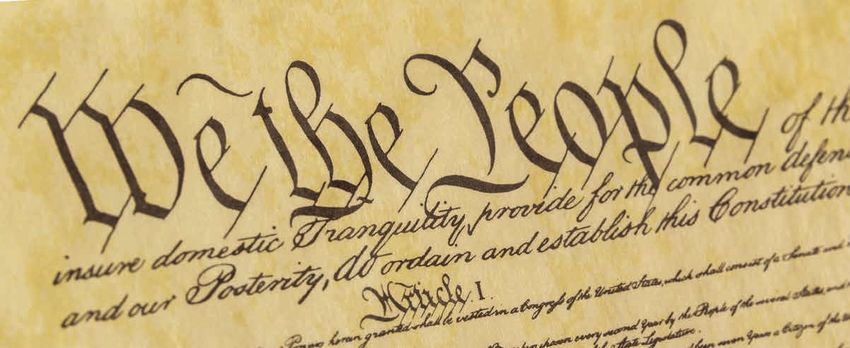 We the People of th
insure domestic Tranquility, provide for the common defen
and our Posterity, do ordain and establish this Constitution
Article. I.
Powers herein granted shall be vested in a Congress of the United States, which shall consist of a Senate and
chosen every second Year by the People of the several States, and
State Legislature.
been seven Years a Citizen of the